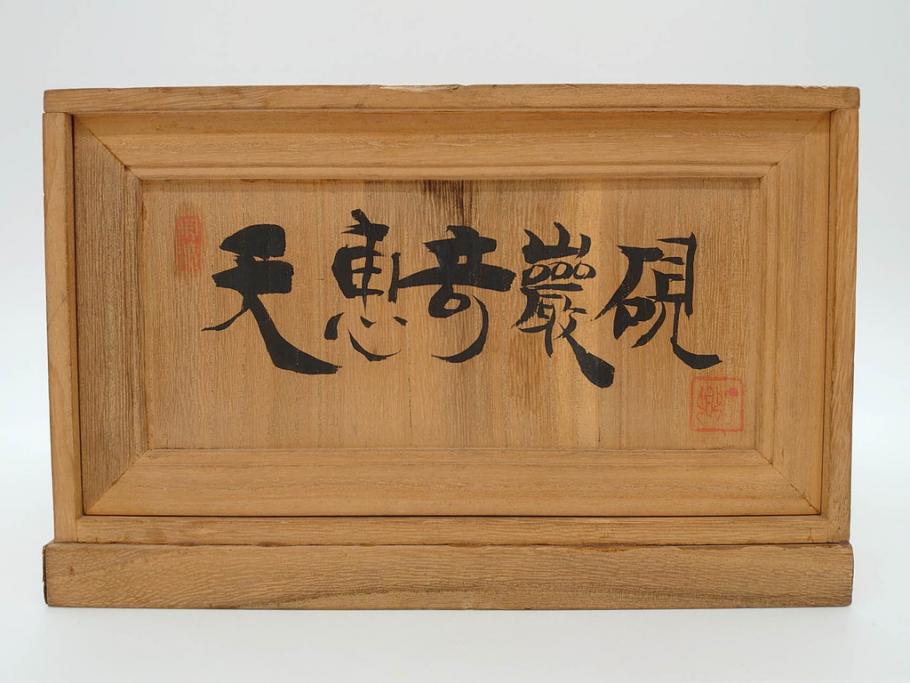 天恵奇巖硯